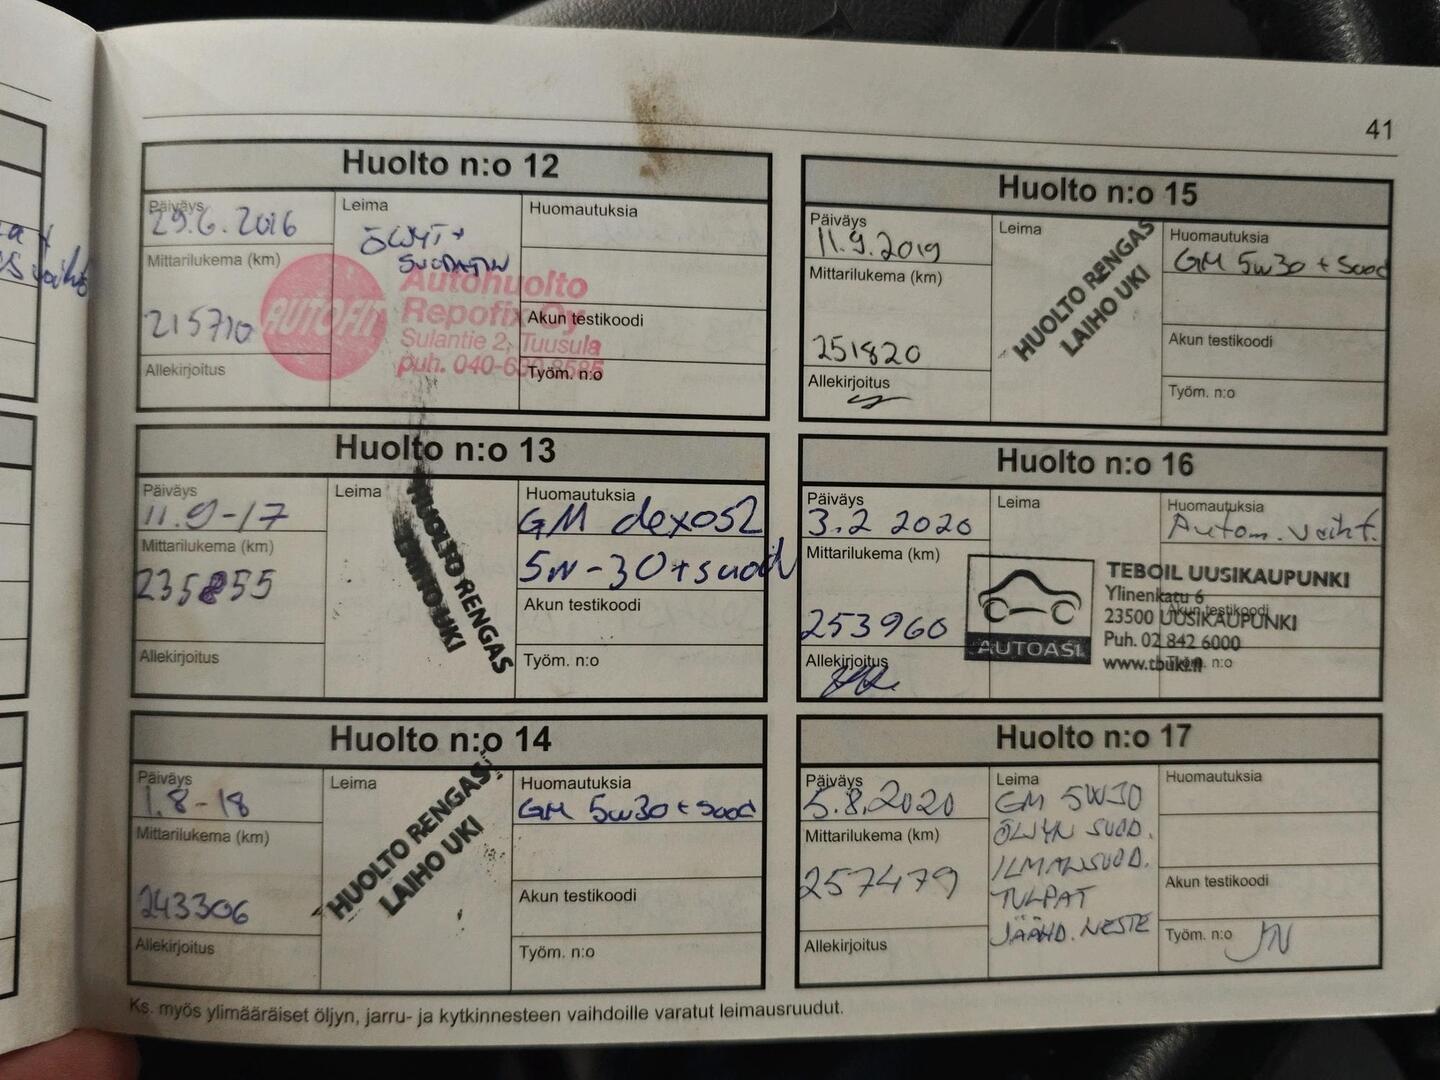 41
Huolto n:o 12
Päiväys
29.6.2016
Mittarilukema (km)
215710
Allekirjoitus
Leima
ÖLJYT +
SUODATIN
AUTOFIT
Autohuolto
Repofix Oy
Sulantie 2, Tuusula
puh. 040-630 8585
Huomautuksia
Akun testikoodi
Työm. n:o
Huolto n:o 13
Päiväys
11.9-17
Mittarilukema (km)
235855
Allekirjoitus
Leima
HUOLTO RENGAS
LAIHO UKI
Huomautuksia
GM dexos2
5W-30+suod
Akun testikoodi
Työm. n:o
Huolto n:o 14
Päiväys
1.8-18
Mittarilukema (km)
243306
Allekirjoitus
Leima
HUOLTO RENGAS
LAIHO UKI
Huomautuksia
GM 5w30 + suod
Akun testikoodi
Työm. n:o
Huolto n:o 15
Päiväys
11.9.2019
Mittarilukema (km)
251820
Allekirjoitus
Leima
HUOLTO RENGAS
LAIHO UKI
Huomautuksia
GM 5w30 + suod
Akun testikoodi
Työm. n:o
Huolto n:o 16
Päiväys
3.2 2020
Mittarilukema (km)
253960
Allekirjoitus
Leima
AUTOASI
TEBOIL UUSIKAUPUNKI
Ylinenkatu 6
23500 UUSIKAUPUNKI
Puh. 02 842 6000
www.tbuki.fi
Huomautuksia
Autom. vaiht.
Akun testikoodi
Työm. n:o
Huolto n:o 17
Päiväys
5.8.2020
Mittarilukema (km)
257479
Allekirjoitus
Leima
GM 5W30
ÖLJYN SUOD.
ILMANSUOD.
TULPAT
JÄÄHD. NESTE
Huomautuksia
Akun testikoodi
Työm. n:o JN
Ks. myös ylimääräiset öljyn, jarru- ja kytkinnesteen vaihdoille varatut leimausruudut.